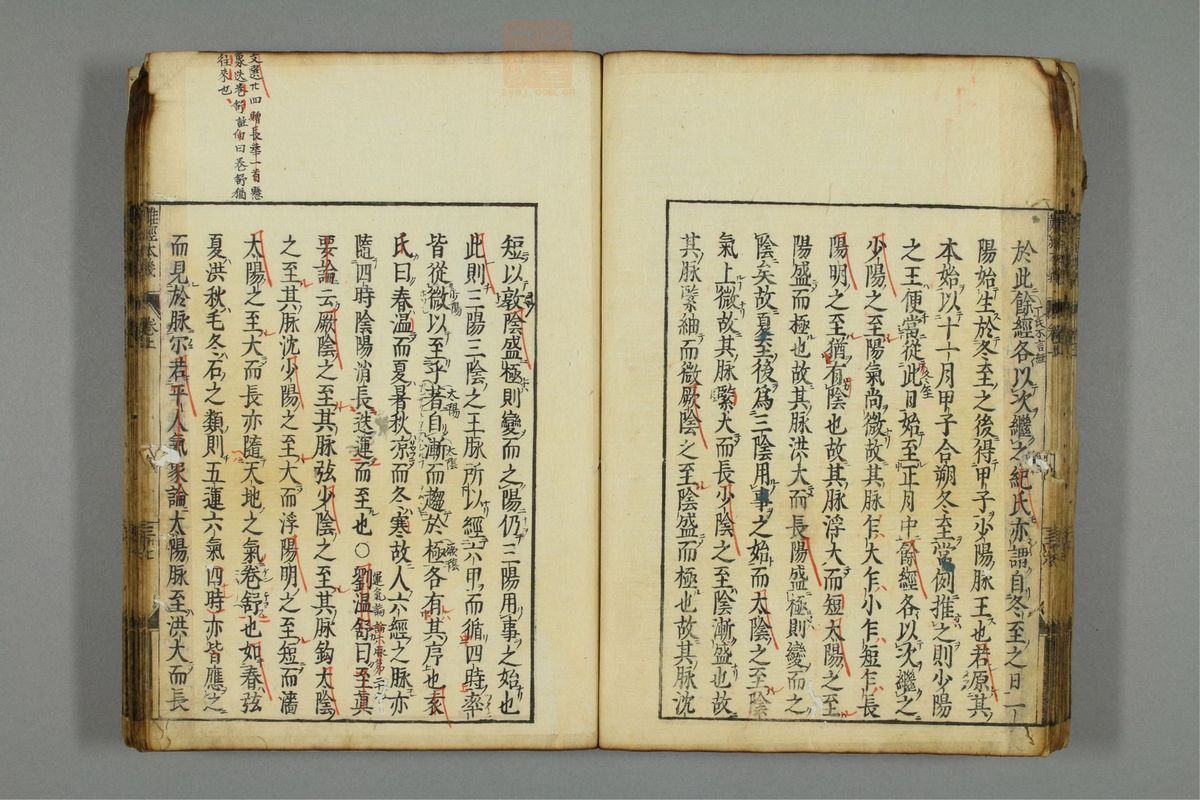 於此餘經各以次繼之紀氏亦謂自冬至之日一
陽始生於冬至之後得甲子少陽脉王也若原其
本始以十一月甲子合朔冬至常例推之則少陽
之王便當從此日始至正月中餘經各以次繼之
少陽之至陽氣尚微故其脉乍大乍小乍短乍長
陽明之至猶有陰也故其脉浮大而短太陽之至
陽盛而極也故其脉洪大而長陽盛極則變而之
陰矣故夏至後爲三陰用事之始而太陰之至陰
氣上微故其脉緊大而長少陰之至陰漸盛也故
其脉緊細而微厥陰之至陰盛而極也故其脉沈
短以敦陰盛極則變而之陽仍三陽用事之始也
此則三陽三陰之王脉所以經六甲而循四時率
皆從微以至乎著自漸而趨於極各有其序也袁
氏曰春温而夏暑秋凉而冬寒故人六經之脉亦
隨四時陰陽消長迭運而至也〇劉温舒曰至眞
要論云厥陰之至其脉弦少陰之至其脉鈎太陰
之至其脉沈少陽之至大而浮陽明之至短而濇
太陽之至大而長亦隨天地之氣卷舒也如春弦
夏洪秋毛冬石之類則五運六氣四時亦皆應之
而見於脉尓若平人氣象論太陽脉至洪大而長
文選廿四贈長華一首懸
象迭卷舒註向曰卷舒猶
往來也
難經本義
卷上